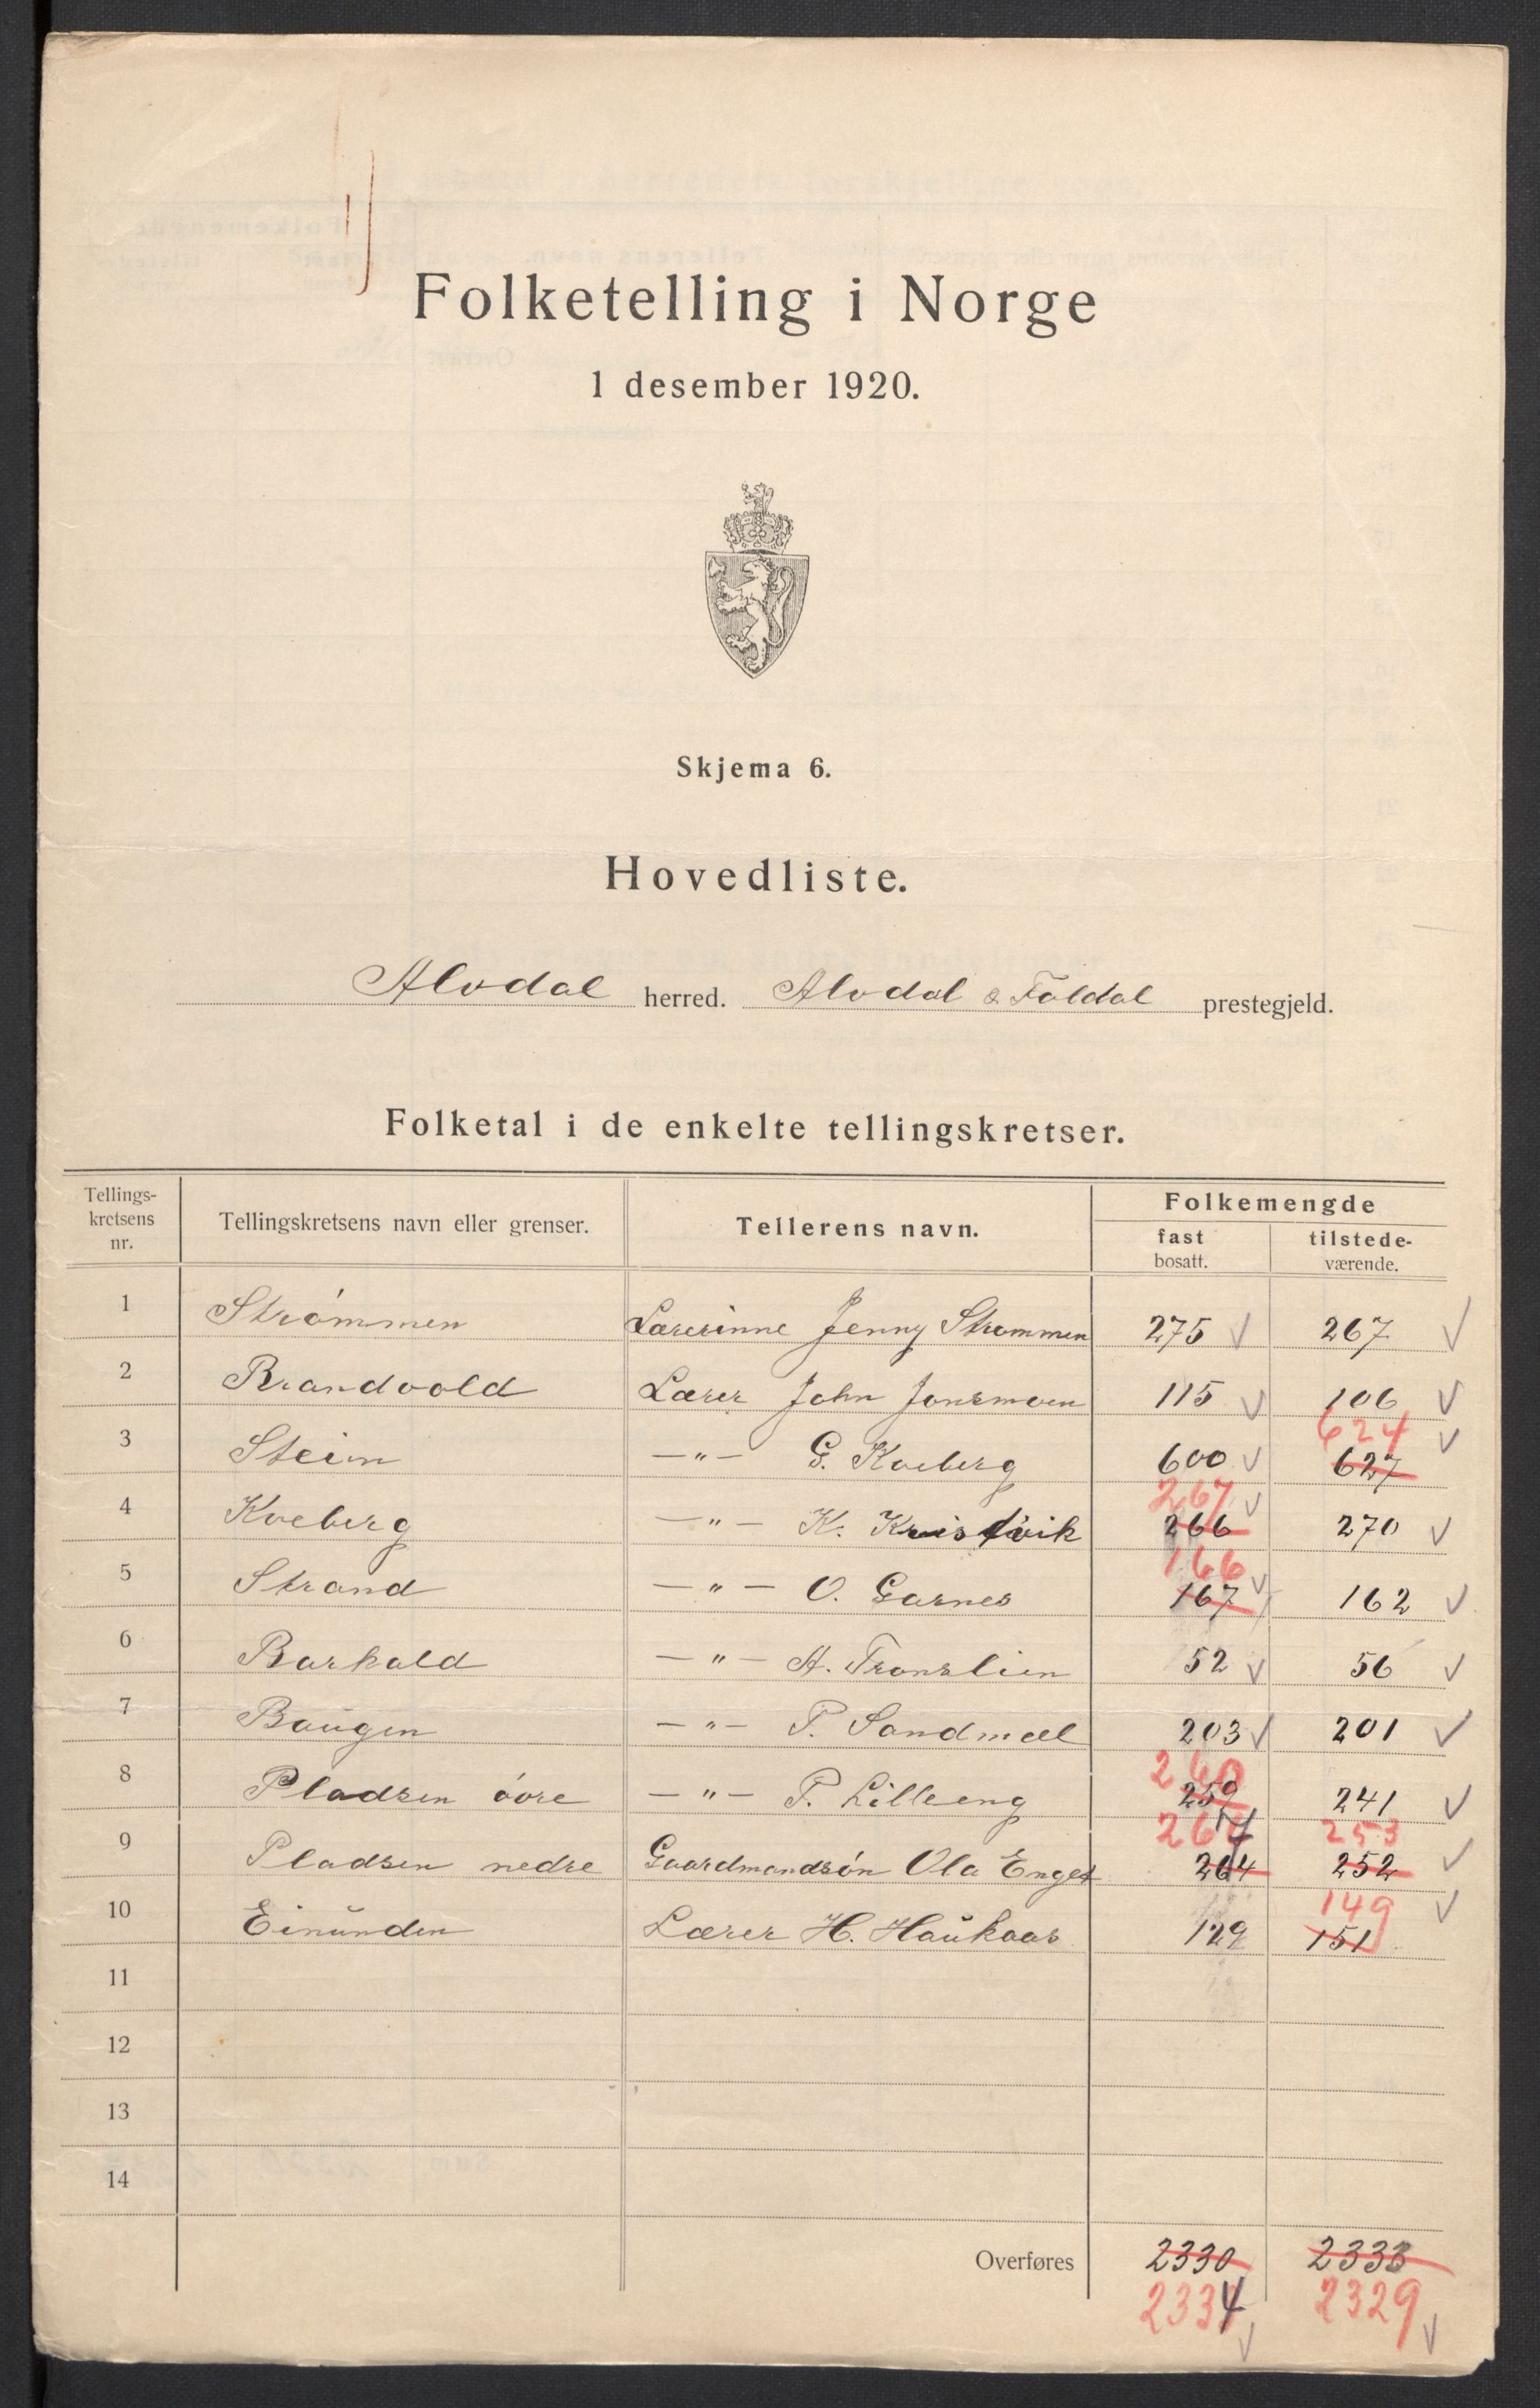 Folketelling i Norge
1 desember 1920.
Skjema 6.
Hovedliste.
Alvdal herred. Alvdal & Foldal prestegjeld.
Folketal i de enkelte tellingskretser.
Tellings-kretsens nr. Tellingskretsens navn eller grenser. Tellerens navn. Folkemengde fast bosatt. tilstede-værende.
1 Strømmen Lærerinne Jenny Strømmen 275 267
2 Brandvold Lærer John Jonsmoen 115 106
624
3 Steim —"— G. Kveberg 600 627
267
4 Kveberg —"— K. Kristvik 266 270
166
5 Strand —"— O. Garnes 167 162
6 Barkald —"— A. Tronslien 52 56
7 Baugen —"— P. Sandmæl 203 201
260
8 Pladsen övre —"— P. Lilleeng 259 241
267 253
9 Pladsen nedre Gaardmandsön Ola Enget 264 252
149
10 Einunden Lærer H. Haukaas 129 151
11
12
13
14
Overføres 2330 2333
2334 2329